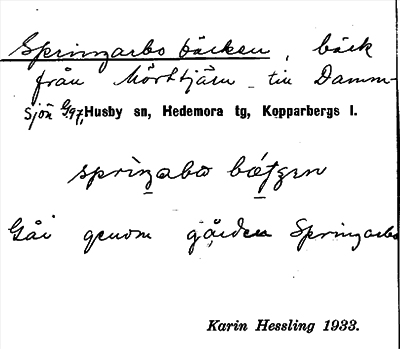 Springarbo bäcken, bäck
från Mörttjärn till Damm-
sjön G.97, Husby sn, Hedemora tg, Kopparbergs l.
springabo
Går genom gården Springarbo
Karin Hessling 1933.